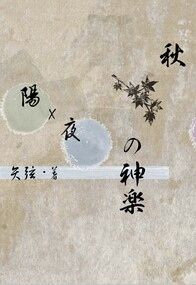 秋の神楽
陽x夜
矢弦・著